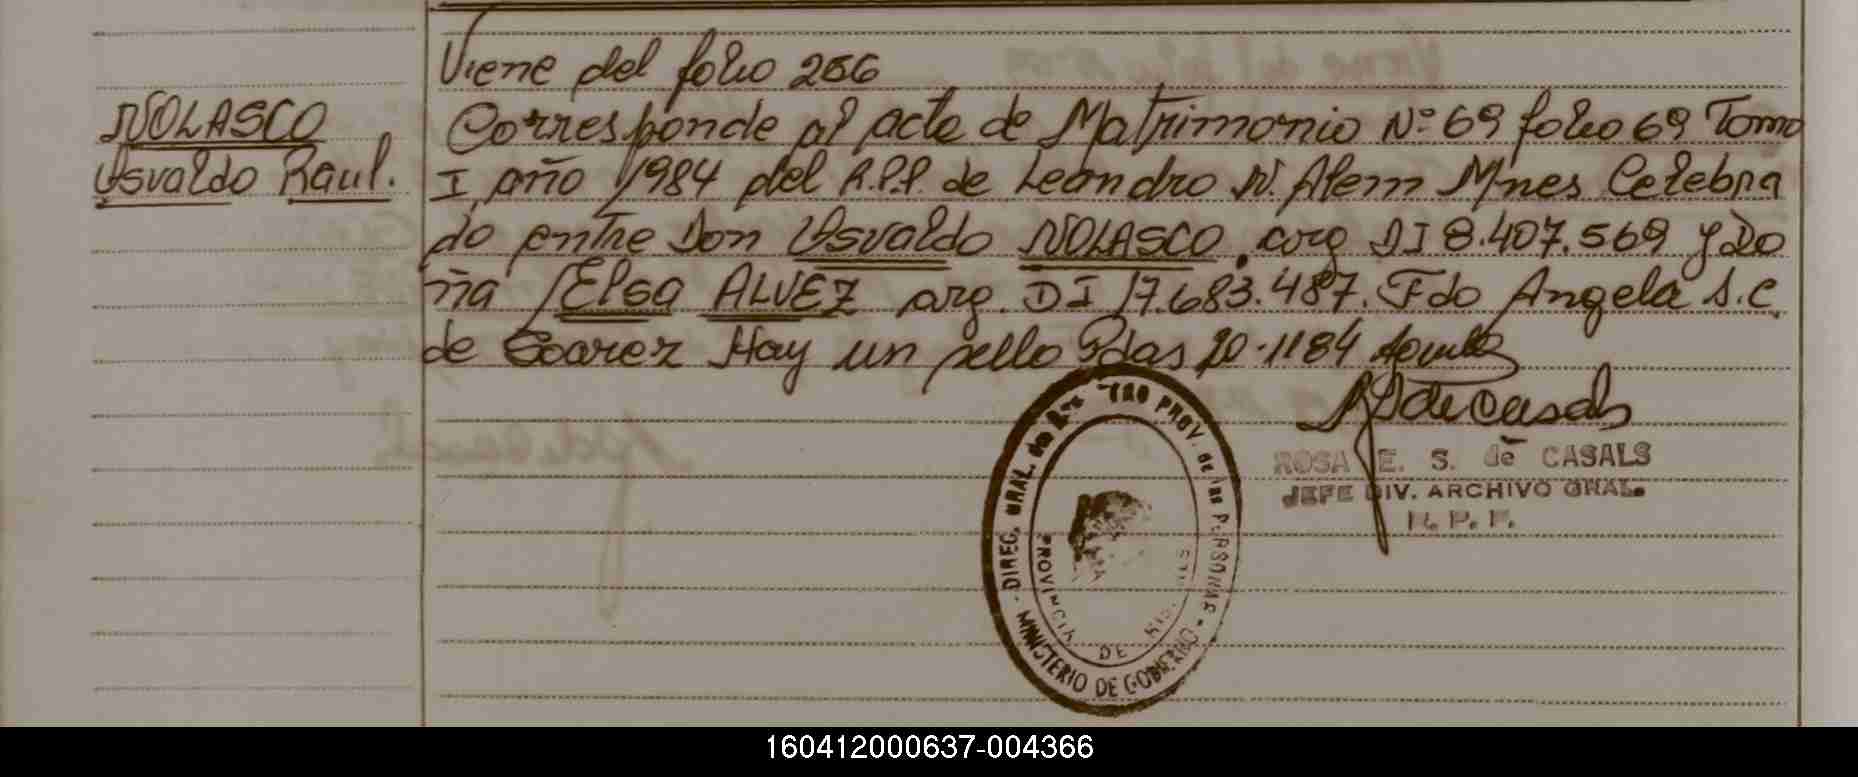 Viene del folio 266
NOLASCO
Osvaldo Raul.
Corresponde al acta de Matrimonio Nº 69 folio 69 Tomo
I año 1984 del R.P.P. de Leandro N. Alem Mnes Celebra
do entre Don Osvaldo NOLASCO. arg DI 8.407.569 y Do
ña Elsa ALVEZ arg. DI 17.683.487. Fdo Angela S.C.
de Hay un sello Pdas 20-11 84
ROSA E. S. de CASALS
JEFE DIV. ARCHIVO GRAL.
R. P. P.
DIREC. GRAL. del TRO PROV. de las PERSONAS
MINISTERIO DE GOBIERNO
PROVINCIA DE
160412000637-004366